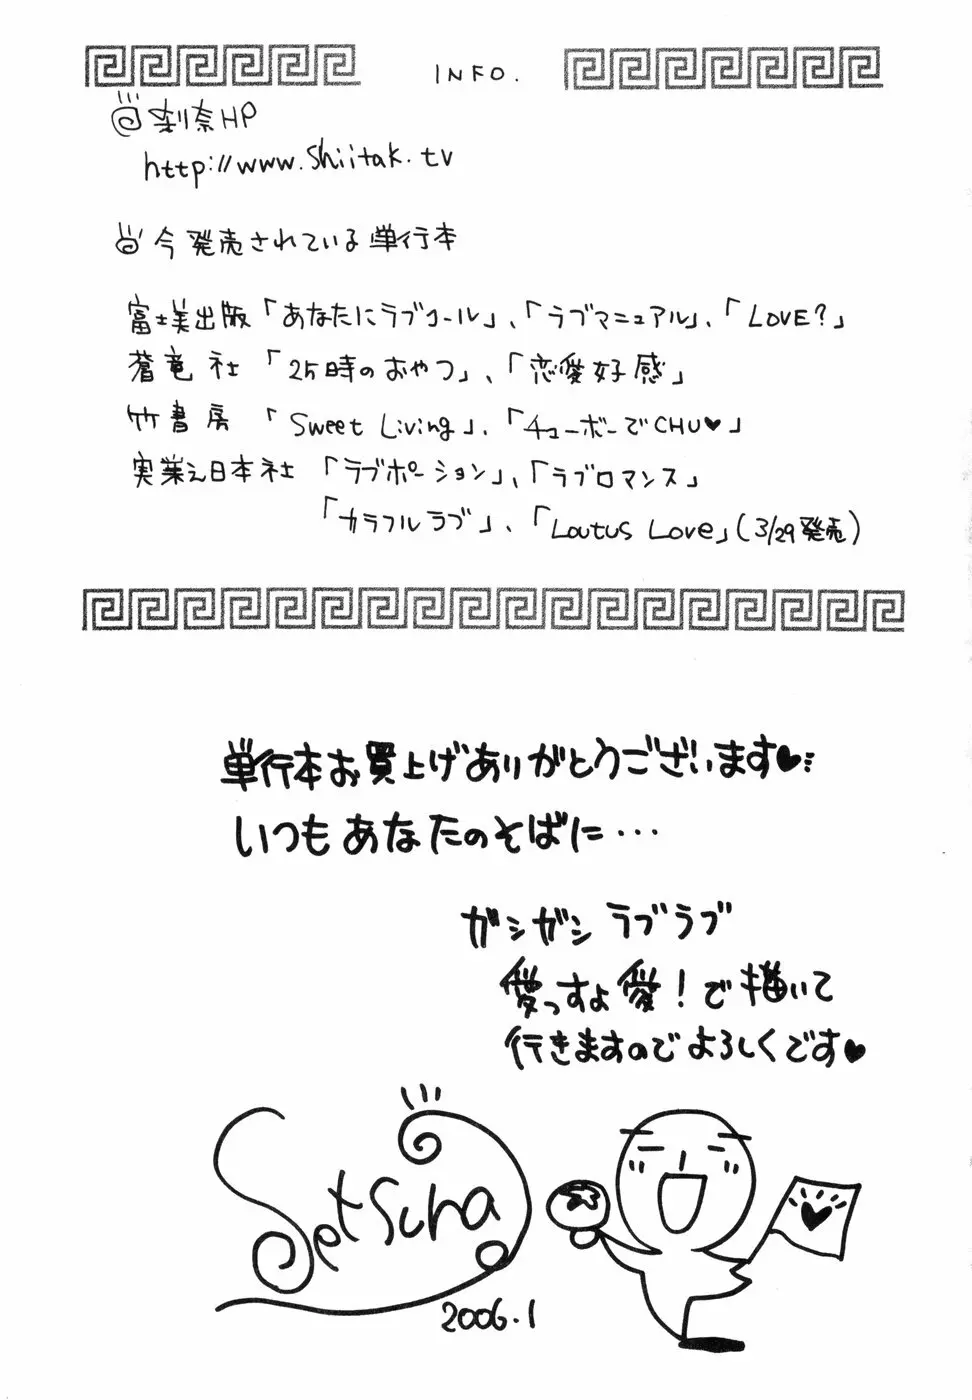 INFO.
刹奈HP
http://www.shiitak.tv
今発売されている単行本
富士美出版「あなたにラブコール」、「ラブマニュアル」、「LOVE?」
蒼竜社「25時のおやつ」、「恋愛好感」
竹書房「Sweet Living」、「チューボーでCHU♥」
実業之日本社「ラブポーション」、「ラブロマンス」
「カラフルラブ」、「Loutus Love」(3/29発売)
単行本お買上げありがとうございます♥…
いつもあなたのそばに…
ガシガシラブラブ
愛っすよ愛!で描いて
行きますのでよろしくです♥
Setsuna
2006.1